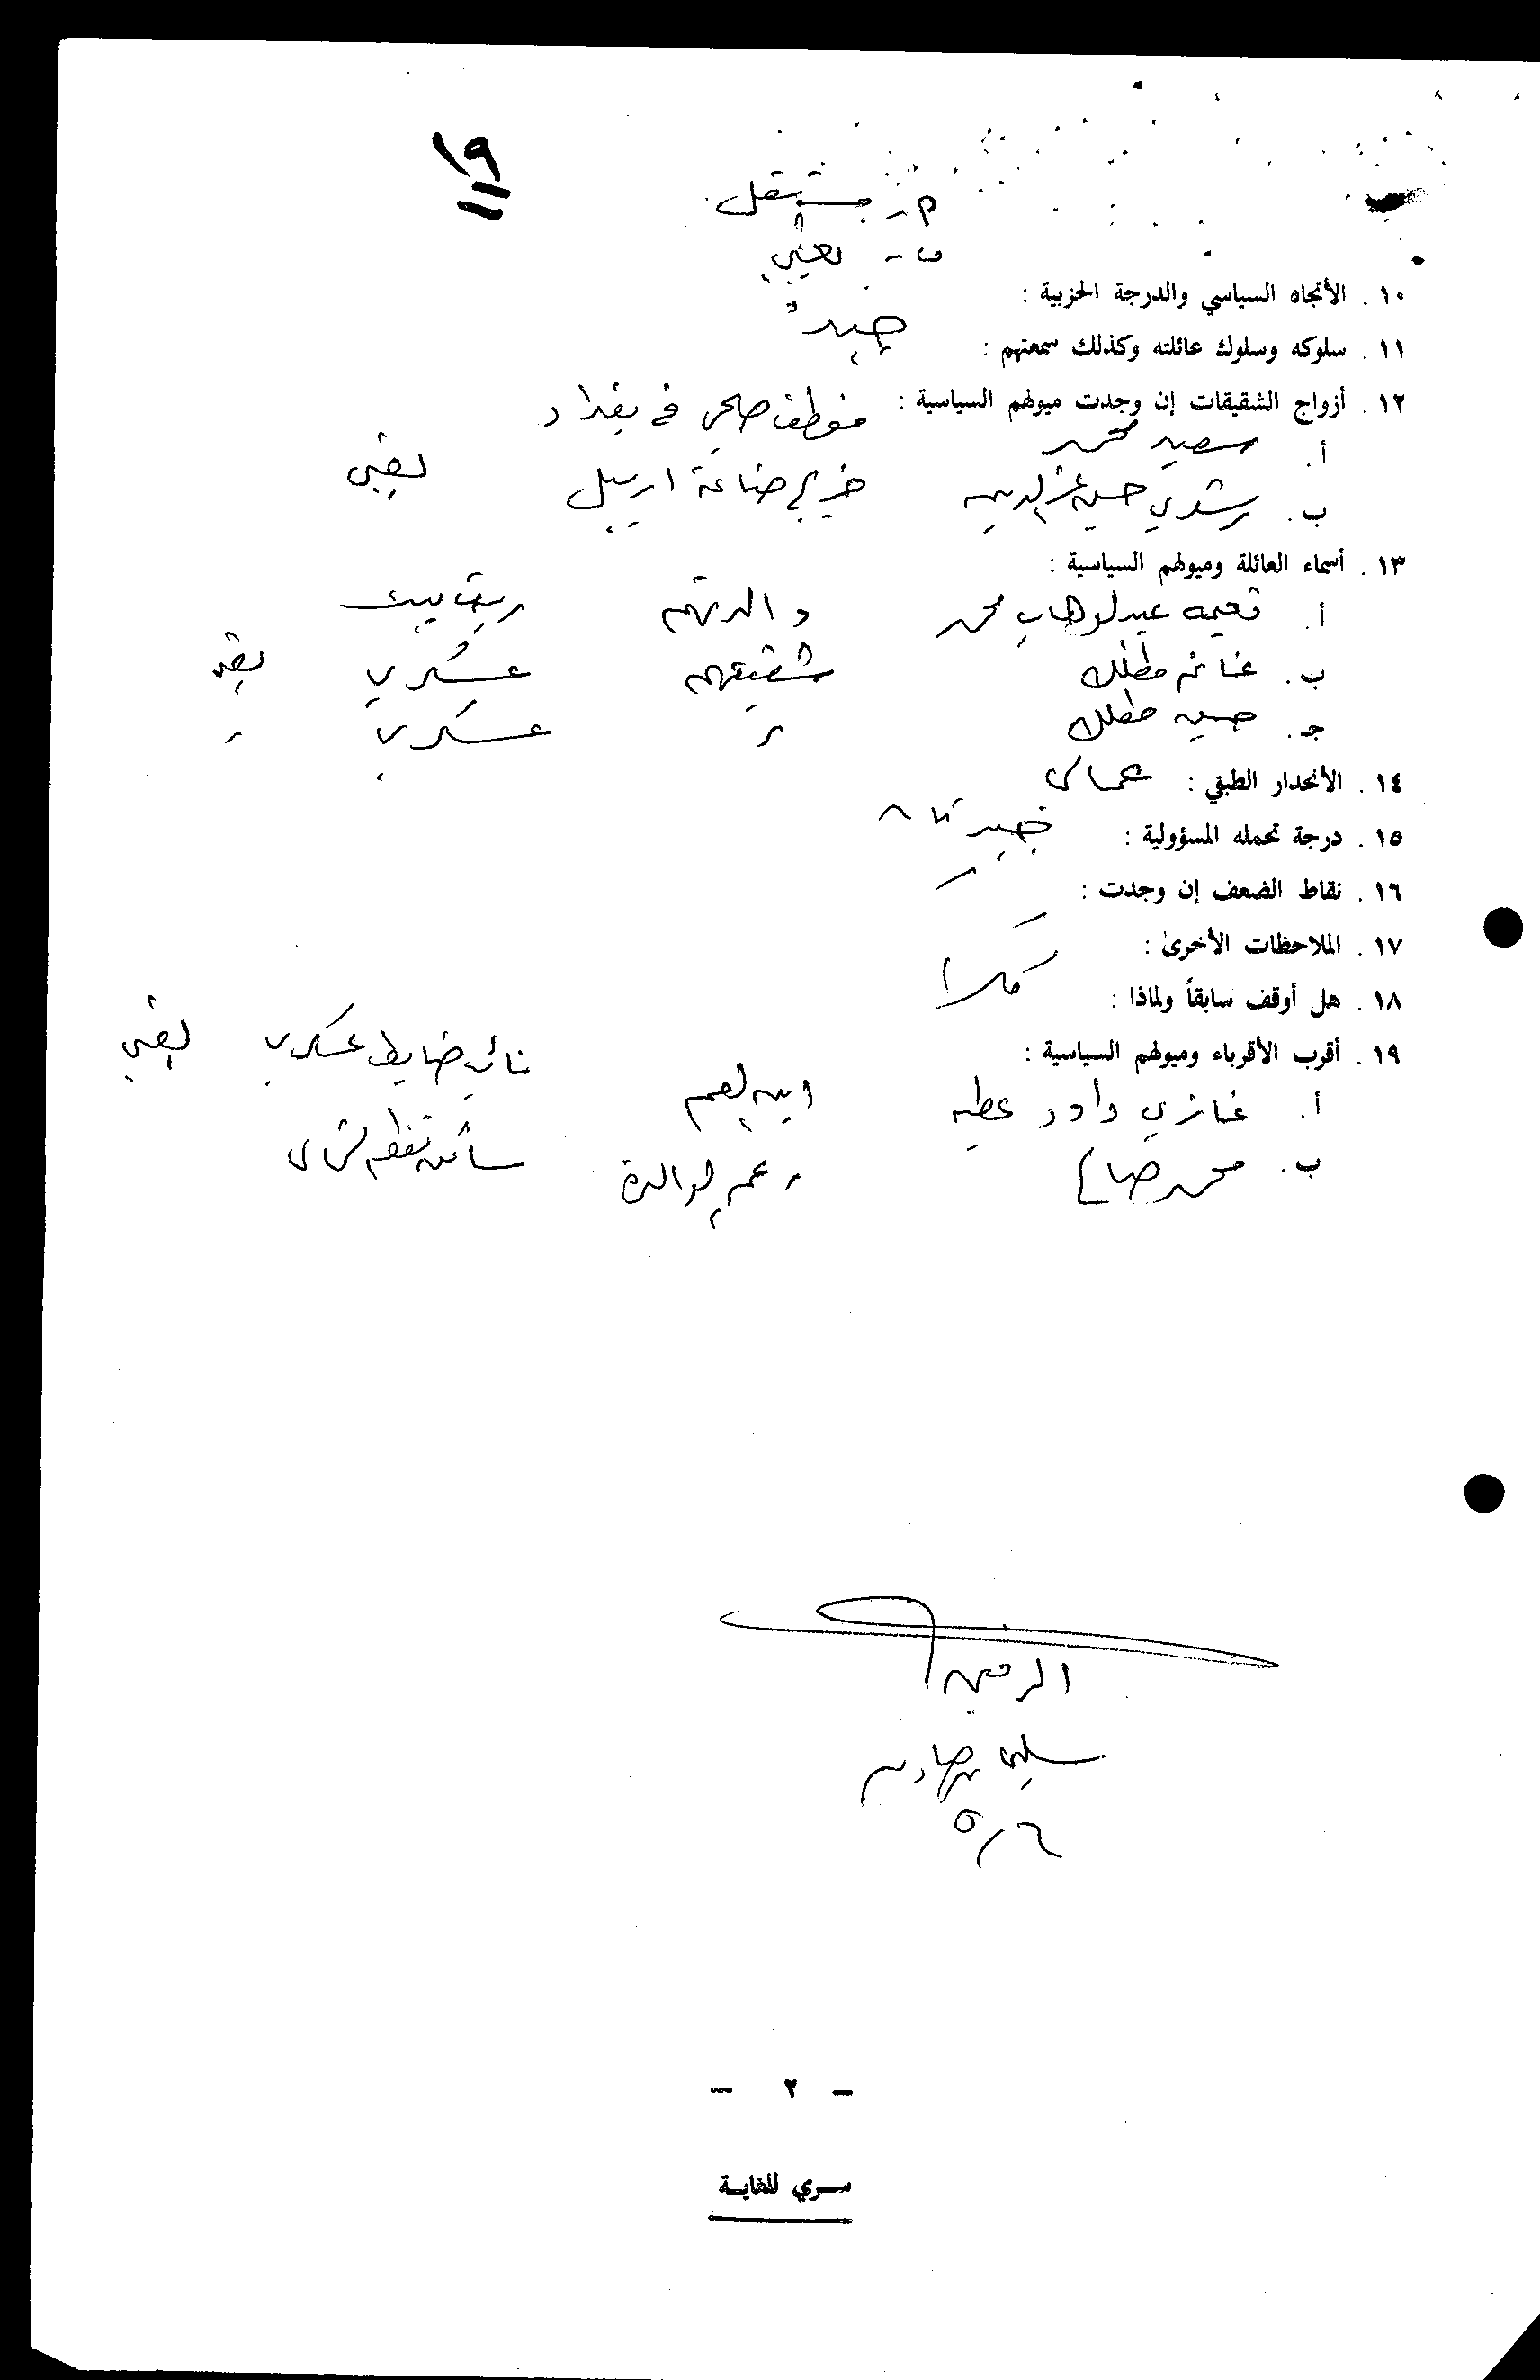 ١٩
م - مستقل
ب - بعثي
١٠ . الأتجاه السياسي والدرجة الحزبية :
١١ . سلوكه وسلوك عائلته وكذلك سمعتهم : جيد
١٢ . أزواج الشقيقات إن وجدت ميولهم السياسية :
أ . سعيد محمد موظف صحي في بغداد
ب . رشدي حسين عز الدين خريج صناعة اربيل بعثي
١٣ . أسماء العائلة وميولهم السياسية :
أ . عبد الوهاب محمد والدتهم ربة بيت
ب . غانم مطلك شقيقهم عسكري بعثي
جـ . حسين مطلك عسكري
١٤ . الأنحدار الطبقي : عمالي
١٥ . درجة تحمله المسؤولية : جيد
١٦ . نقاط الضعف إن وجدت :
١٧ . الملاحظات الأخرى :
١٨ . هل أوقف سابقاً ولماذا : كلا
١٩ . أقرب الأقرباء وميولهم السياسية :
أ . غازي داود عطيه ابن العم نائب ضابط عسكري بعثي
ب . محمد صالح عم الوالدة سائق نفط الشمال
الرفيق
٥/٦
- ٢ -
سري للغاية